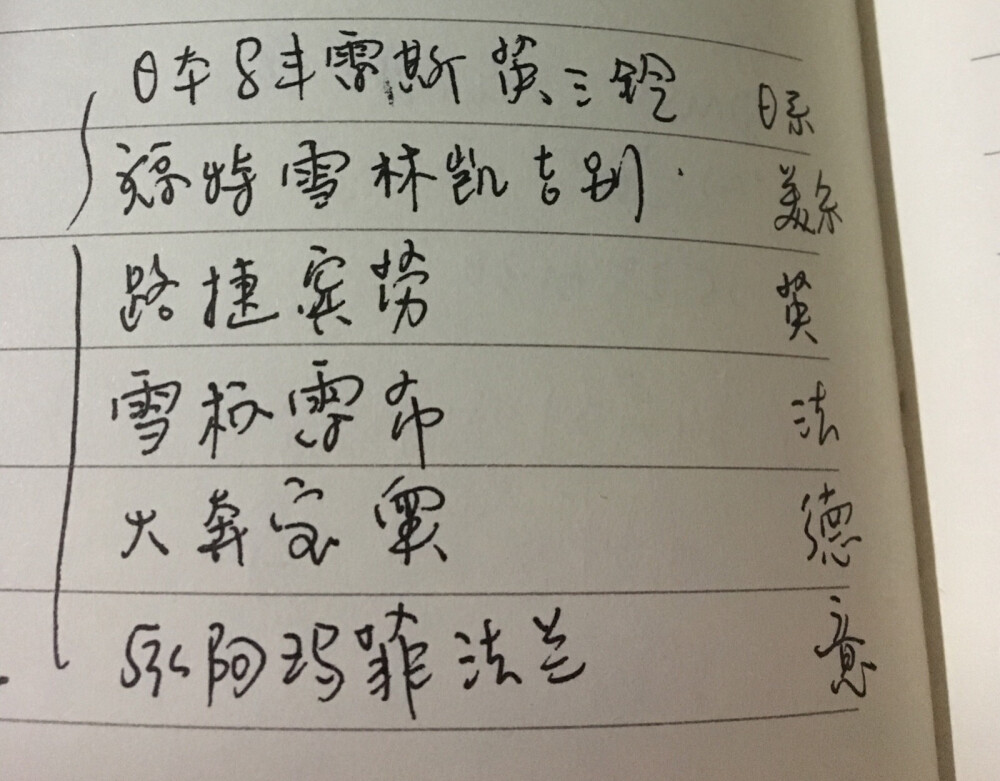 日本8丰雷斯英三铃 日系
福特雪林凯吉别 美系
路捷宾劳 英
雪标雷布 法
大奔宝奥 德
阿玛菲法兰 意